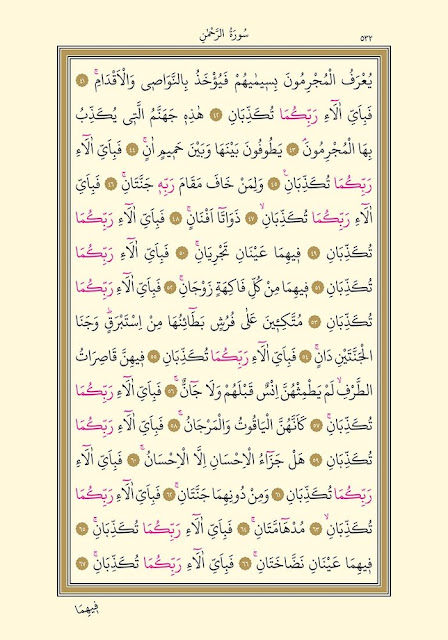 ٥٣٢ سُورَةُ الرَّحْمٰنِ
يُعْرَفُ الْمُجْرِمُونَ بِسِيمٰيهُمْ فَيُؤْخَذُ بِالنَّوَاصِي وَالْاَقْدَامِۚ ٤١
فَبِاَيِّ اٰلَٓاءِ رَبِّكُمَا تُكَذِّبَانِ ٤٢ هٰذِهِ جَهَنَّمُ الَّتِي يُكَذِّبُ
بِهَا الْمُجْرِمُونَۢ ٤٣ يَطُوفُونَ بَيْنَهَا وَبَيْنَ حَمِيمٍ اٰنٍۚ ٤٤ فَبِاَيِّ اٰلَٓاءِ
رَبِّكُمَا تُكَذِّبَانِ۟ ٤٥ وَلِمَنْ خَافَ مَقَامَ رَبِّهِ جَنَّتَانِۚ ٤٦ فَبِاَيِّ
اٰلَٓاءِ رَبِّكُمَا تُكَذِّبَانِۙ ٤٧ ذَوَاتَٓا اَفْنَانٍۚ ٤٨ فَبِاَيِّ اٰلَٓاءِ رَبِّكُمَا
تُكَذِّبَانِ ٤٩ فِيهِمَا عَيْنَانِ تَجْرِيَانِۚ ٥٠ فَبِاَيِّ اٰلَٓاءِ رَبِّكُمَا
تُكَذِّبَانِ ٥١ فِيهِمَا مِنْ كُلِّ فَاكِهَةٍ زَوْجَانِۚ ٥٢ فَبِاَيِّ اٰلَٓاءِ رَبِّكُمَا
تُكَذِّبَانِ ٥٣ مُتَّكِـِٔينَ عَلٰى فُرُشٍ بَطَٓائِنُهَا مِنْ اِسْتَبْرَقٍۜ وَجَنَا
الْجَنَّتَيْنِ دَانٍۚ ٥٤ فَبِاَيِّ اٰلَٓاءِ رَبِّكُمَا تُكَذِّبَانِ ٥٥ فِيهِنَّ قَاصِرَاتُ
الطَّرْفِۙ لَمْ يَطْمِثْهُنَّ اِنْسٌ قَبْلَهُمْ وَلَا جَٓانٌّۚ ٥٦ فَبِاَيِّ اٰلَٓاءِ رَبِّكُمَا
تُكَذِّبَانِۚ ٥٧ كَاَنَّهُنَّ الْيَاقُوتُ وَالْمَرْجَانُۚ ٥٨ فَبِاَيِّ اٰلَٓاءِ رَبِّكُمَا
تُكَذِّبَانِ ٥٩ هَلْ جَزَٓاءُ الْاِحْسَانِ اِلَّا الْاِحْسَانُۚ ٦٠ فَبِاَيِّ اٰلَٓاءِ
رَبِّكُمَا تُكَذِّبَانِ ٦١ وَمِنْ دُونِهِمَا جَنَّتَانِۚ ٦٢ فَبِاَيِّ اٰلَٓاءِ رَبِّكُمَا
تُكَذِّبَانِۙ ٦٣ مُدْهَٓامَّتَانِۚ ٦٤ فَبِاَيِّ اٰلَٓاءِ رَبِّكُمَا تُكَذِّبَانِۚ ٦٥
فِيهِمَا عَيْنَانِ نَضَّاخَتَانِۚ ٦٦ فَبِاَيِّ اٰلَٓاءِ رَبِّكُمَا تُكَذِّبَانِۚ ٦٧
فِيهِمَا